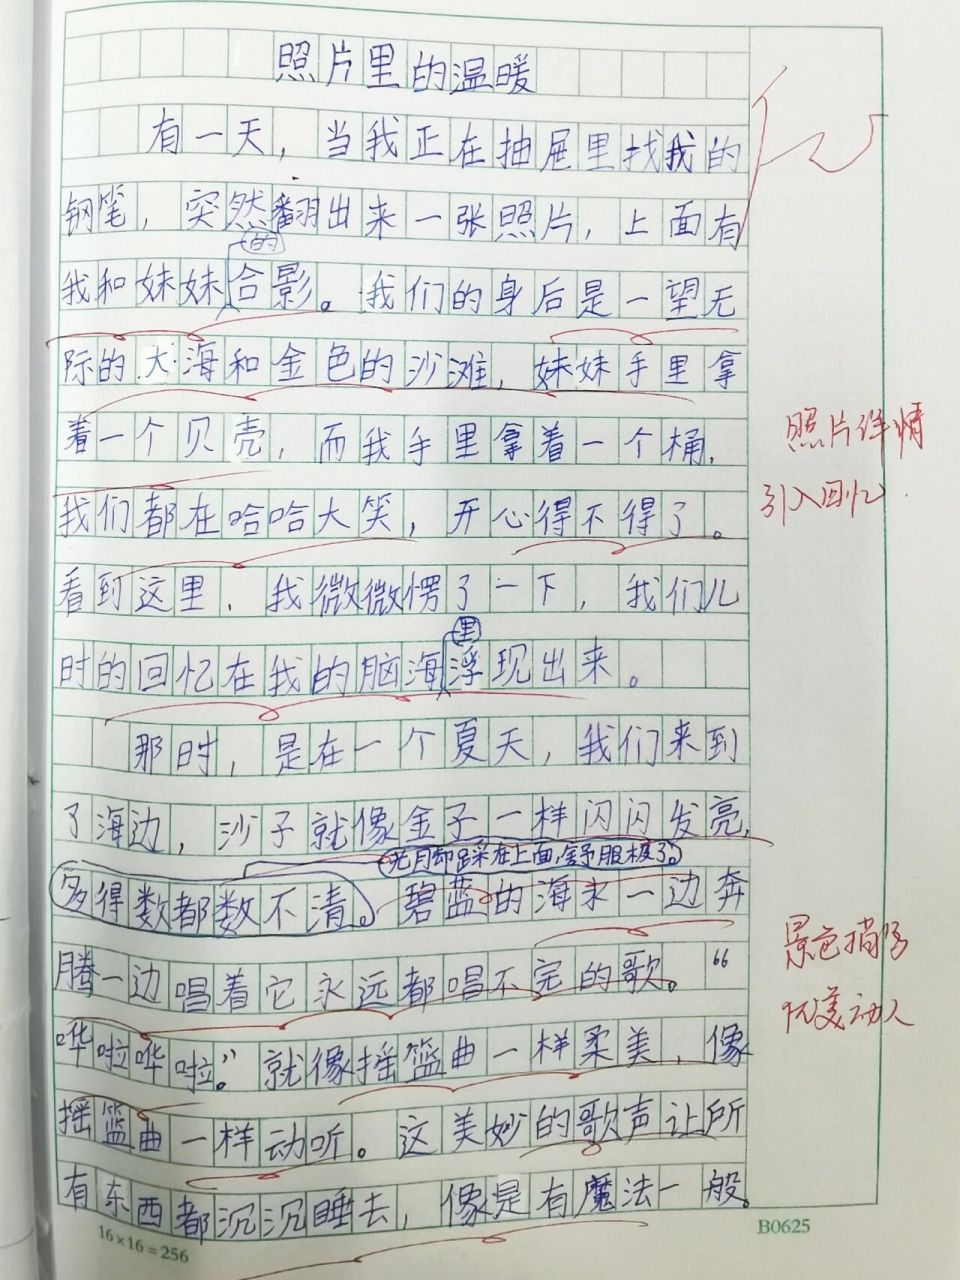 照片里的温暖
有一天，当我正在抽屉里找我的
钢笔，突然翻出来一张照片，上面有
的
我和妹妹合影。我们的身后是一望无
际的大海和金色的沙滩，妹妹手里拿
着一个贝壳，而我手里拿着一个桶，
照片详情
我们都在哈哈大笑，开心得不得了。
引入回忆
看到这里，我微微愣了一下，我们儿
里
时的回忆在我的脑海浮现出来。
那时，是在一个夏天，我们来到
了海边，沙子就像金子一样闪闪发亮，
光脚踩在上面，舒服极了。
多得数都数不清。碧蓝的海水一边奔
景色描写
腾一边唱着它永远都唱不完的歌。“
优美动人
哗啦哗啦。”就像摇篮曲一样柔美，像
摇篮曲一样动听。这美妙的歌声让所
有东西都沉沉睡去，像是有魔法一般。
16×16=256
B0625